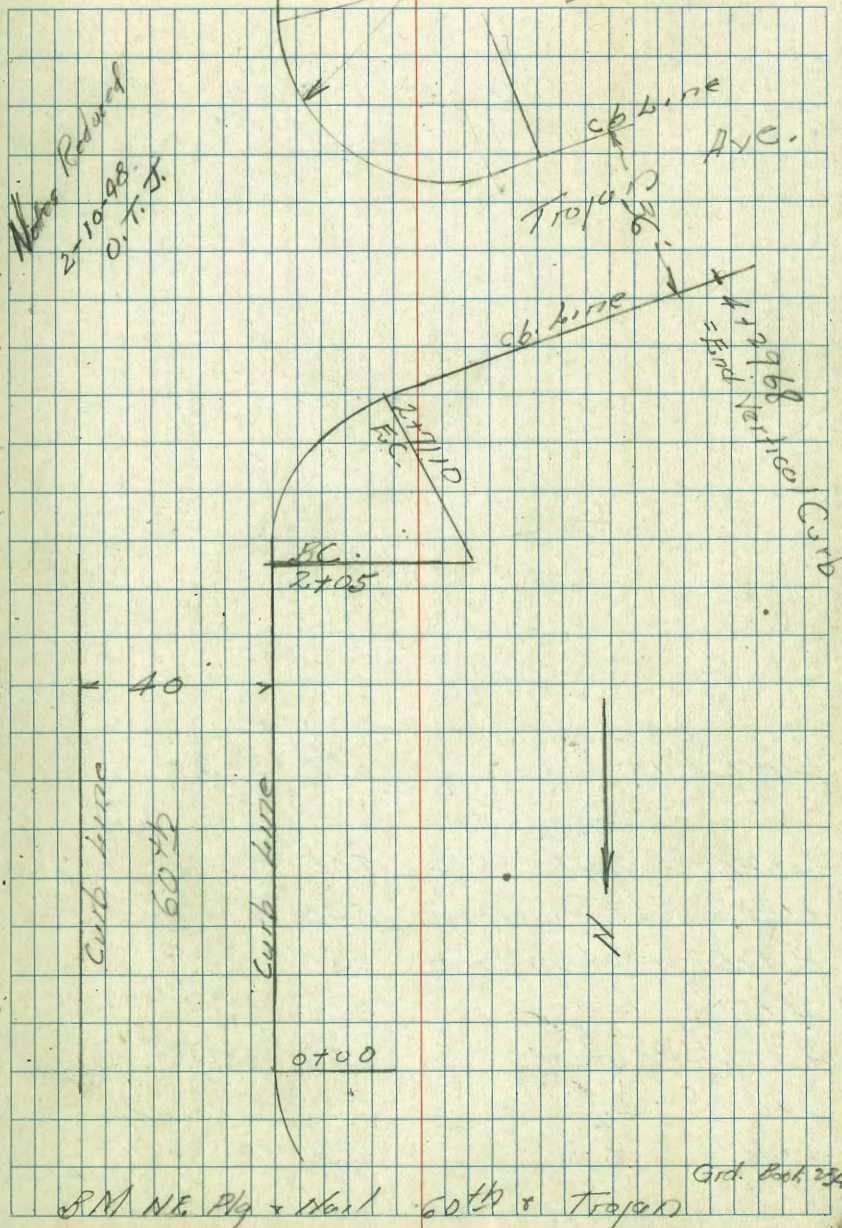 Notes Reduced
2-10-48
O.T.J.
cb. Line
Ave.
36
cb. Line
4+29.68
=End Vertical Curb
2+71.10
E.C.
B.C.
2+05
40
Curb Line
60th
Curb Line
N
0+00
BM NE Plg & Nail 60th & Trojan
Grd. Book